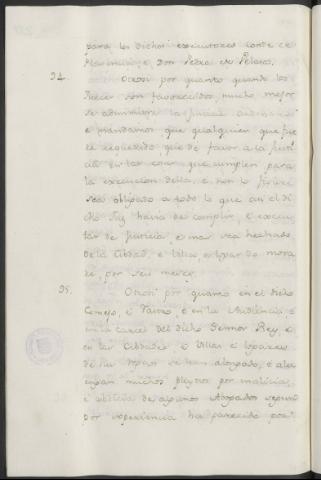 para los dichos executores conde de
Don Pedro de Velasco.
34. Otrosi por quanto quando los
Jueces son favorecidos, mucho mejor
se administra la justicia ordenamos
e mandamos que qualquier que fue
re requerido que dé favor a la justi
cia en las cosas que cumplen para
la execucion della, e non lo ficiere
sea obligado a todo lo que asi el di
cho Juez havia de complir, e execu
tar de justicia, e mas sea hechado
de la cibdad, e villa e logar do mora
re, por
35. Otrosi por quanto en el dicho
Consejo, e en la Audiencia, e
carcel del dicho Señor Rey, e
en las Cibdades e Villas e logares
de sus se han alongado, e alu
engan muchos pleytos por malicias,
e de algunos Abogados segund
por experiencia ha parecido por